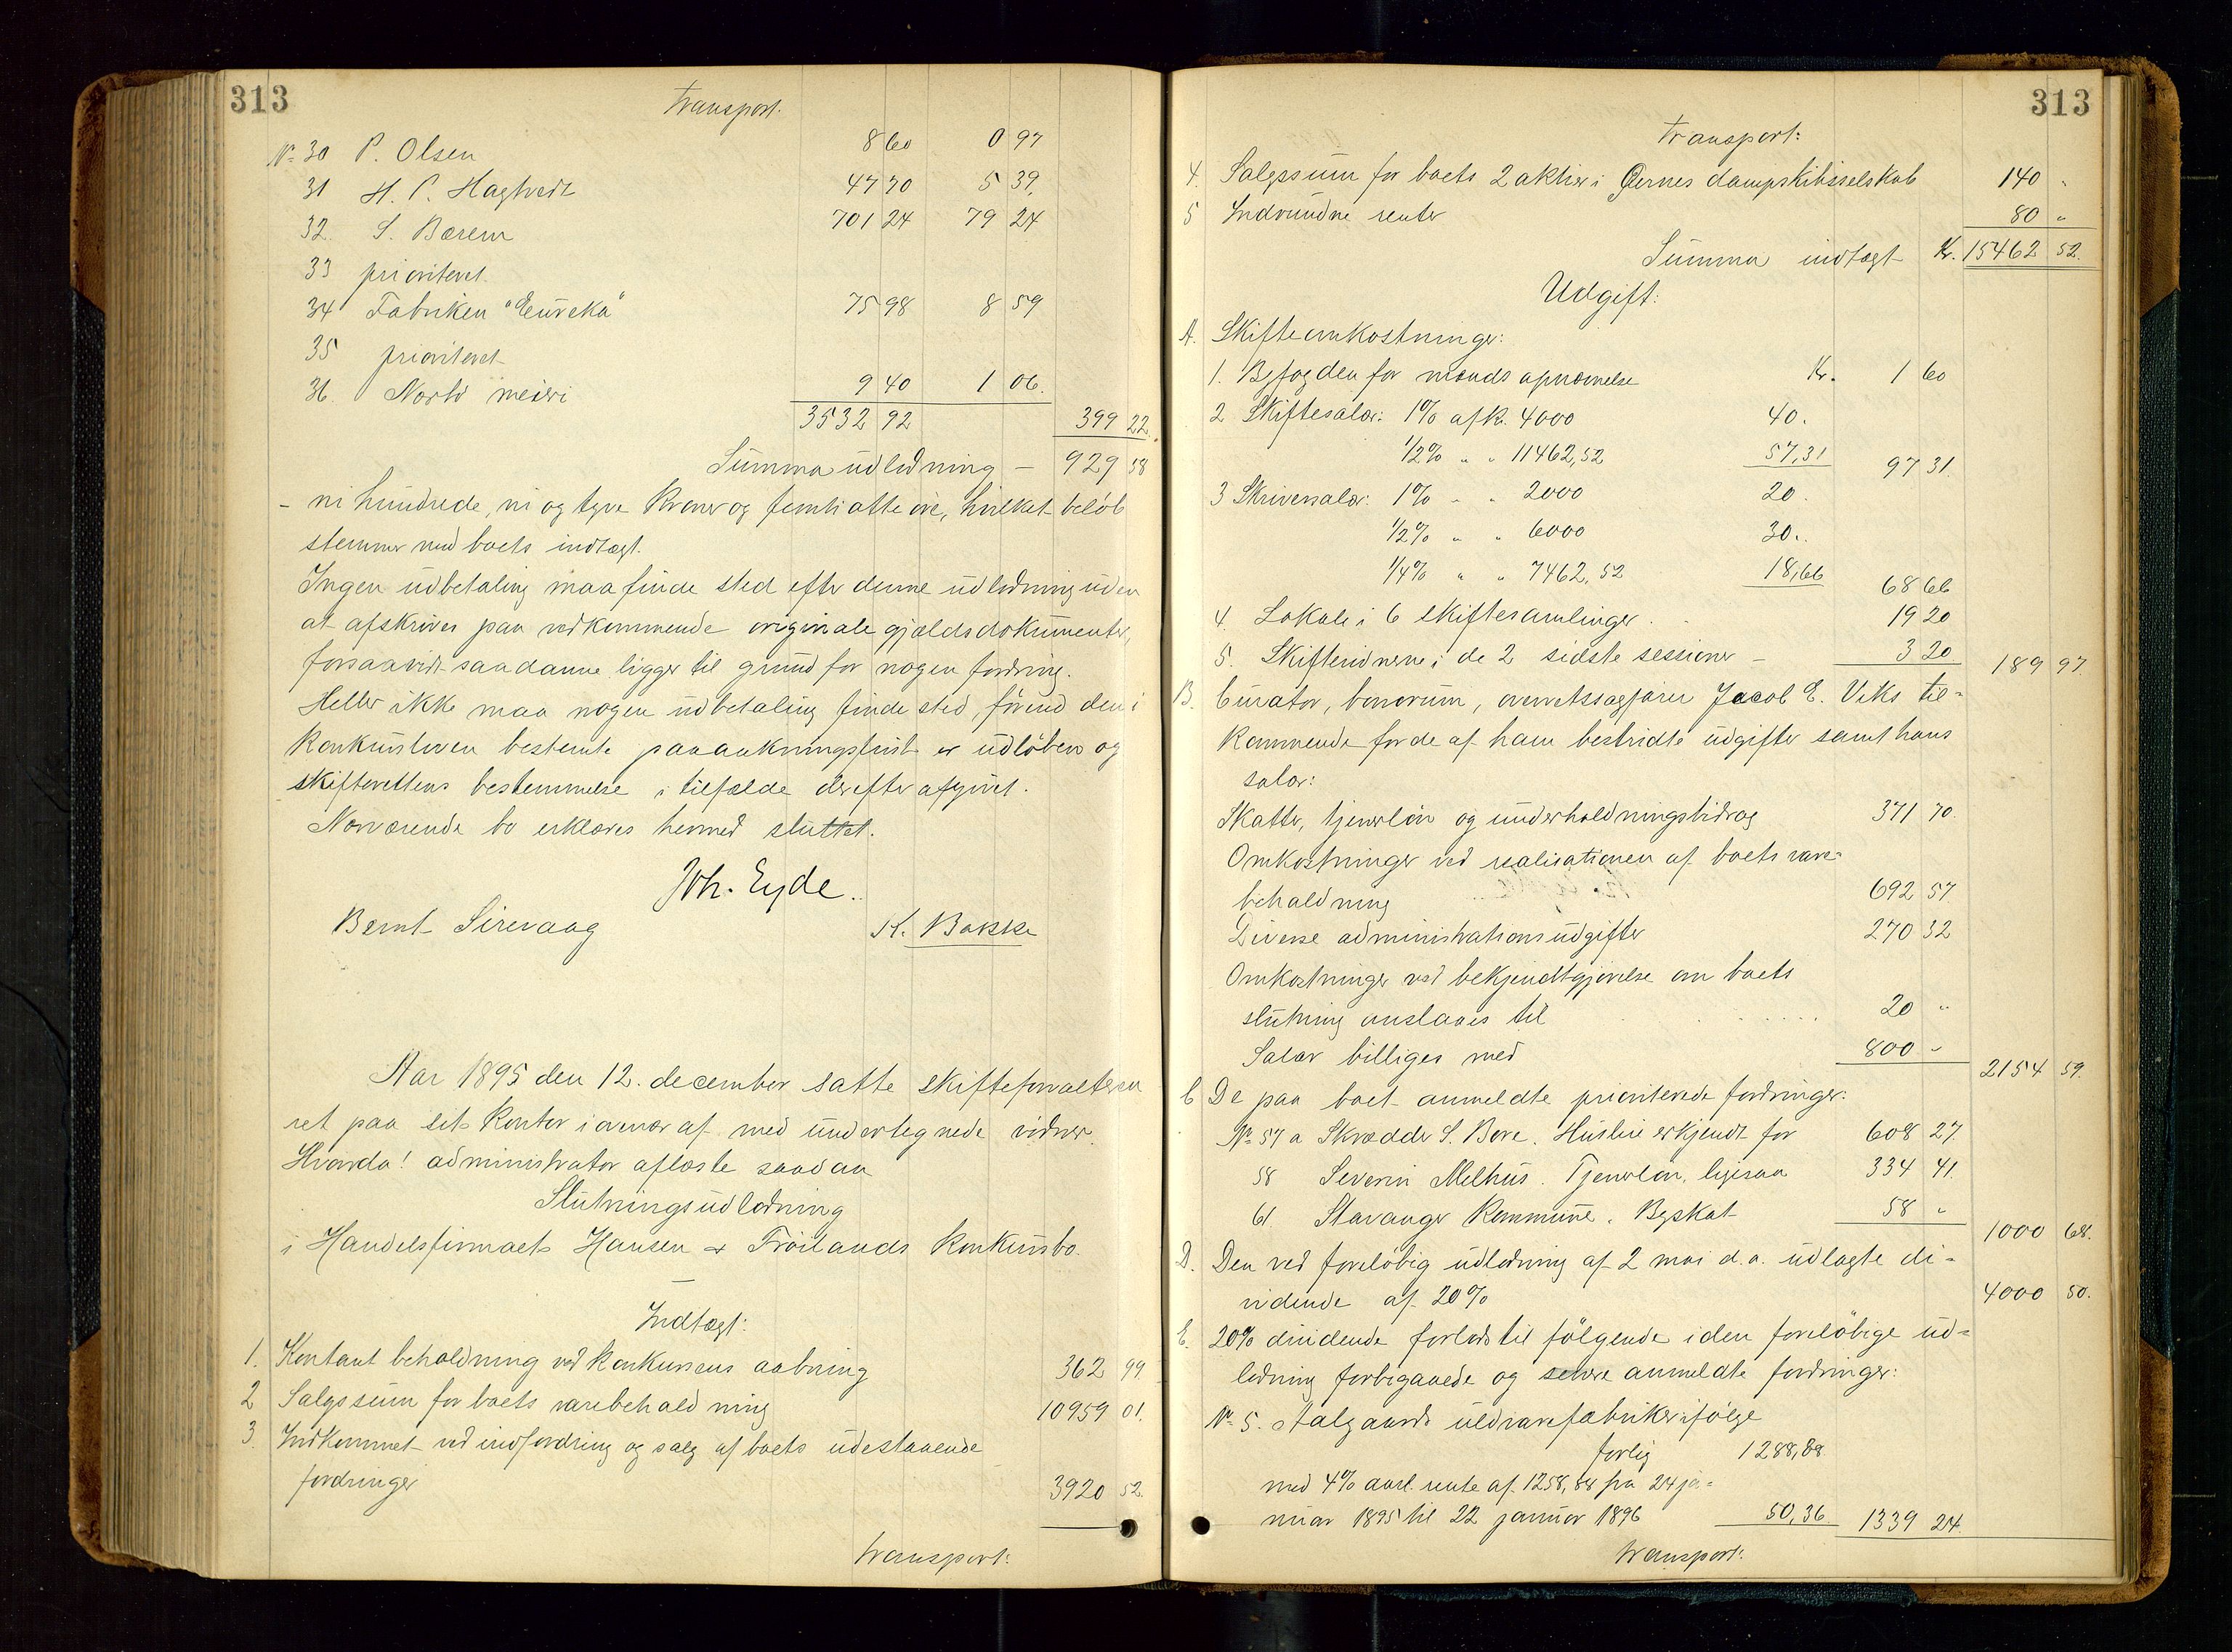 313
Transport.
No 30 P. Olsen 8 60 0 97
31 H. P. Hagtvedt 47 70 5 39
32. S. Bærem 701 24 79 24
33 prioriteret.
34 Fabriken "Eureka" 75 98 8 59
35 prioriteret
36. Norbø meieri 9 40 1 06.
3532 92 399 22.
Summa udlodning – 929 58
– ni hundrede, ni og tyve Kroner og femti otte øre, hvilket beløb
stemmer med boets indtægt.
Ingen udbetaling maa finde sted efter denne udlodning uden
at afskrives paa vedkommende originale gjældsdokumenter,
forsaavidt saadanne ligger til grund for nogen fordring.
Heller ikke maa nogen udbetaling finde sted, førend den i
Konkursloven bestemte paaankningsfrist er udløben og
skifterettens bestemmelse i tilfælde derefter afgivet.
Nærværende bo erklæres hermed sluttet.
Joh. Eyde.
Bernt Sirevaag K. Bakke
Aar 1895 den 12. december satte skifteforvalteren
ret paa sit Kontor i overvær af med undertegnede vidner.
Hvorda! administrator aflæste saadan
Slutningsudlodning
i Handelsfirmaet Hansen & Frøilands Konkursbo.
Indtægt:
1. Kontant beholdning ved Konkursens aabning 362 99
2 Salgssum for boets varebeholdning 10959 01.
3. Indkommet ved indfordring og salg af boets udestaaende
fordringer 3920 52.
Transport:
313
Transport:
4. Salgssum for boets 2 aktier i Øernes dampskibsselskab 140 "
5 Indvundne renter 80 "
Summa indtægt Kr. 15462 52.
Udgift:
A. Skifteomkostninger:
1. Byfogden for mænds opnævnelse Kr. 1 60
2 Skiftesalær: 1% af Kr. 4000 40.
1/2% " " 11462,52 57,31 97 31.
3 Skriversalær: 1% " " 2000 20.
1/2% " " 6000 30..
1/4% " " 7462,52 18,66 68 66
4. Lokale i 6 skiftesamlinger. 19 20
5. Skiftevidnerne i de 2 sidste sessioner – 3 20 189 97.
B. Curator, bonorum, overretssagfører Jacob E. Veks til-
kommende for de af ham bestridte udgifter samt hans
salær:
Skatter, tjenerløn og underholdningsbidrag 371 70.
Omkostninger ved realisationen af boets vare-
beholdning 692 57
Diverse administrationsudgifter 270 32
Omkostninger ved bekjendtgjørelse om boets
slutning anslaaes til 20 "
Salær billiges med 800 " 2154 59.
C De paa boet anmeldte prioriterede fordringer:
No 57 a Skrædder S. Bore. Husleie erkjendt for 608 27.
58 Severin Melhus. Tjenerløn, ligesaa 334 41.
61 Stavanger Kommune. Byskat 58 " 1000 68.
D. Den ved foreløbig udlodning af 2 mai d.a. udlagte di-
vidende af 20% 4000 50.
E. 20% dividende forlods til følgende i den foreløbige ud-
lodning forbigaaede og senere anmeldte fordringer:
No 5. Aalgaards uldvarefabriker ifølge
forlig 1288,88
med 4% aarl. rente af 1258,88 fra 24 ja-
nuar 1895 til 22 januar 1896 50,36 1339 24.
Transport: